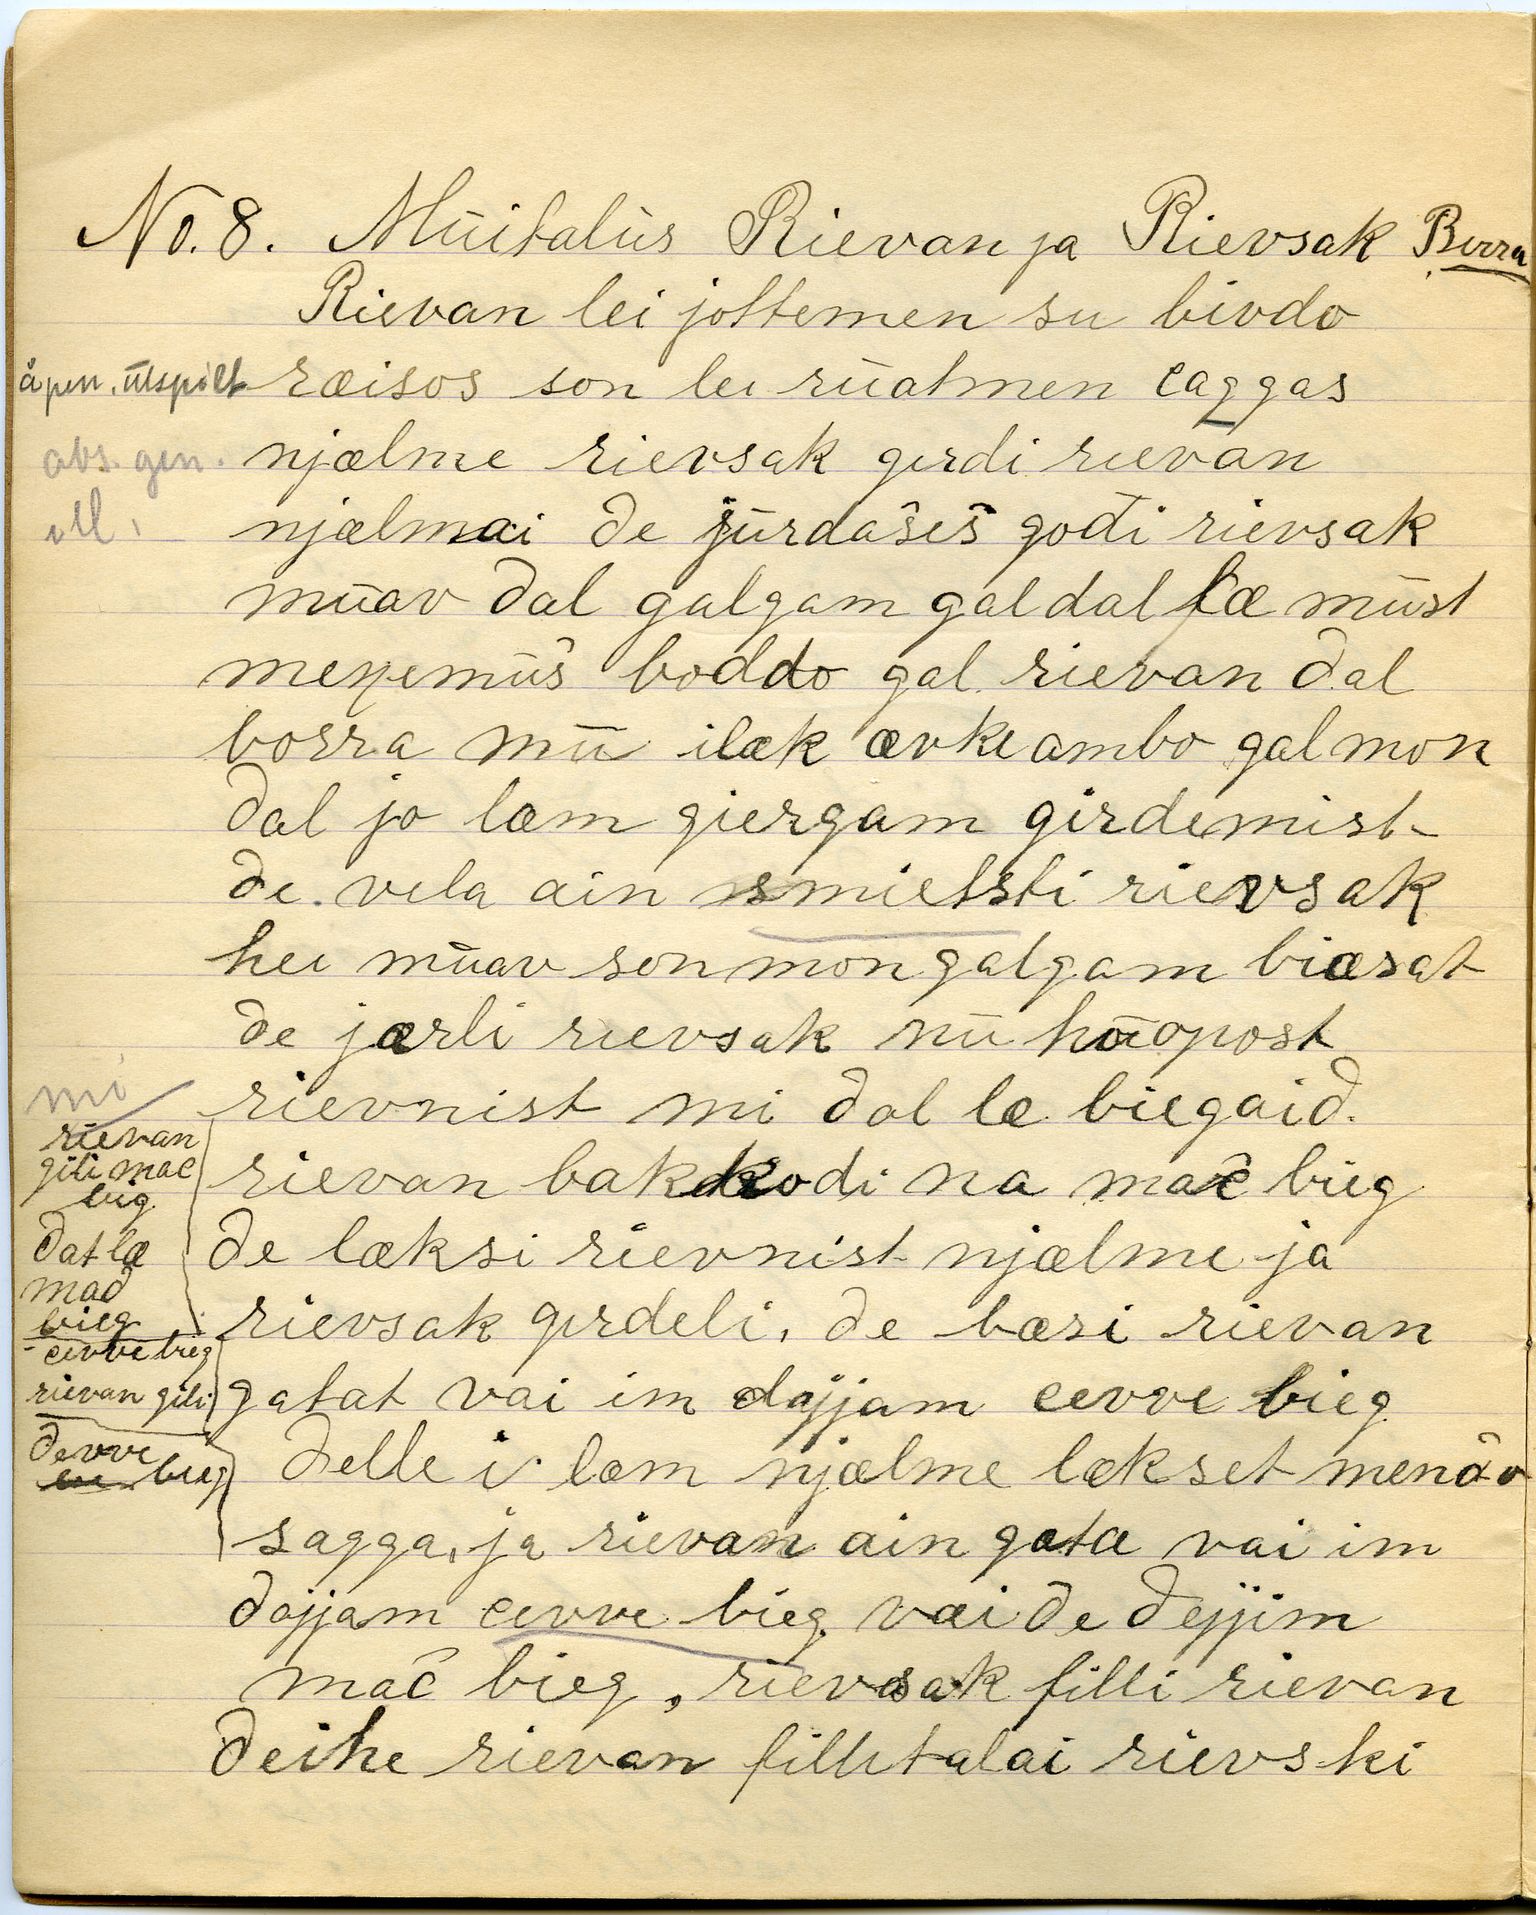 No. 8. Mūitalūs Rievan ja Rievsak Birra
Rievan lei jottemen su bivdo
åpen, ūtspilt
ræisos son lei rūatmen caggas
abs. gen.
njælme rievsak girdi rievan
ill.
njælmai de jūrdašeš gođi rievsak
mūav dal galgam gal dal læ mūst
boddo gal rievan dal
borra mū ilæk ævkeambo gal mon
dal jo læm giergam girdemist
de vela ain smietsti rievsak
hei mūav son mon galgam biæsat
de jærli rievsak nū hūopost
rievnist mi dal le biegaid.
mi
rievan bakkodi na mač bieg
rievan
gili mac
bieg
de læksi rievnist njælme ja
dat læ
mad
bieg
rievsak girdeli, de bæsi rievan
cevve bieg
gatat vai im dajjam cevve bieg
rievan gili
delle i læm njælme lekset
devve
bieg
sagga, ja rievan ain gata vai im
dajjam cevve bieg vai de dejjim
mač bieg, rievsak filli rievan
deihe rievan filletalai rievski